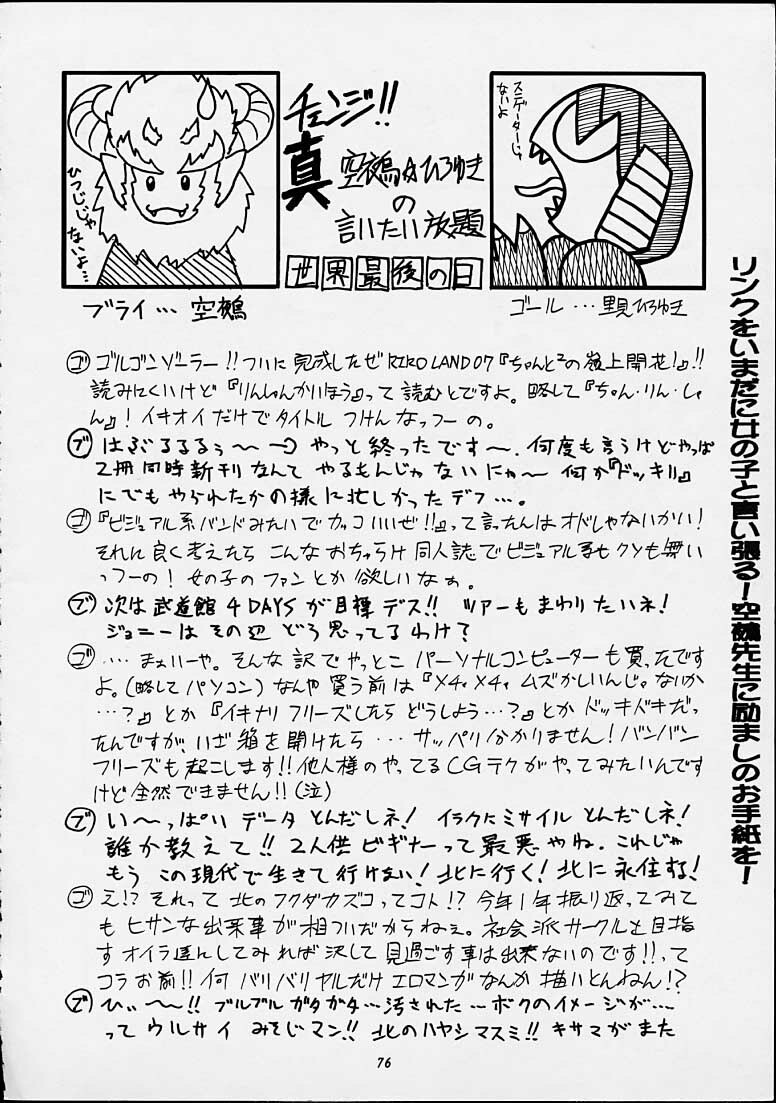 ひつじじゃ
ないよ…
チェンジ!!
真
空鵺☆ひろゆき
の
言いたい放題
世界最後の日
ステゴーターじゃ
ないよ
ブライ… 空鵺
ゴール …里見ひろゆき
リンクをいまだに女の子と言い張る!空鵺先生に励ましのお手紙を!
ゴ ゴルゴンゾーラー!!ついに完成したぜRIROLAND07『ちゃんと²の嶺上開花!』!!
読みにくいけど『りんしゃんかいほう』って読むとですよ。略して『ちゃん・りん・しゃ
ん』!イキオイだけでタイトルつけんなっつーの。
ブ はぶるるるぅ〜〜 やっと終ったです〜。何度も言うけどやっぱ
2冊同時新刊なんて やるもんじゃないにゃ〜 何か『ドッキリ』
にでもやられたかの様に忙しかったデフ…。
ゴ 『ビジュアル系バンドみたいでカッコいいぜ!!』って言ったんはオドレじゃないかい!
それに良く考えたら こんなおちゃらけ同人誌でビジュアル系もクソも無い
っつーの!女の子のファンとか欲しいなぁ。
ブ 次は武道館4DAYSが目標デス!! ツアーもまわりたいネ!
ジョニーはその辺どう思ってるわけ?
ゴ …まぁいーや。そんな訳でやっとこ パーソナルコンピューターも買ったです
よ。(略してパソコン)なんや買う前は『メチャメチャ ムズかしいんじゃないか
…?』とか『イキナリフリーズしたら どうしよう…?』とか ドッキドキだっ
たんですが、いざ箱を開けたら… サッパリ分かりません!バンバン
フリーズも起こします!!他人様のやってるCGテクがやってみたいんです
けど全然できません!!(泣)
ブ い〜っぱい データとんだしネ! イラクにミサイルとんだしネ!
誰か教えて!!2人供ビギナーって最悪やね。これじゃ
もう この現代で生きて行けない!北に行く!北に永住する!
ゴ え!?それって北のフクダカズコってコト!?今年1年振り返ってみて
も ヒサンな出来事が相ついだからねぇ。社会派サークルを目指
すオイラ達んしてみれば決して見過ごす事は出来ないのです!!って
コラお前!!何バリバリヤルだけエロマンガなんか描いとんねん!?
ブ ひぃ〜〜!!ブルブルガタガタ…汚された…ボクのイメージが…
って ウルサイみそじマン!!北のハヤシマスミ!!キサマがまた
76